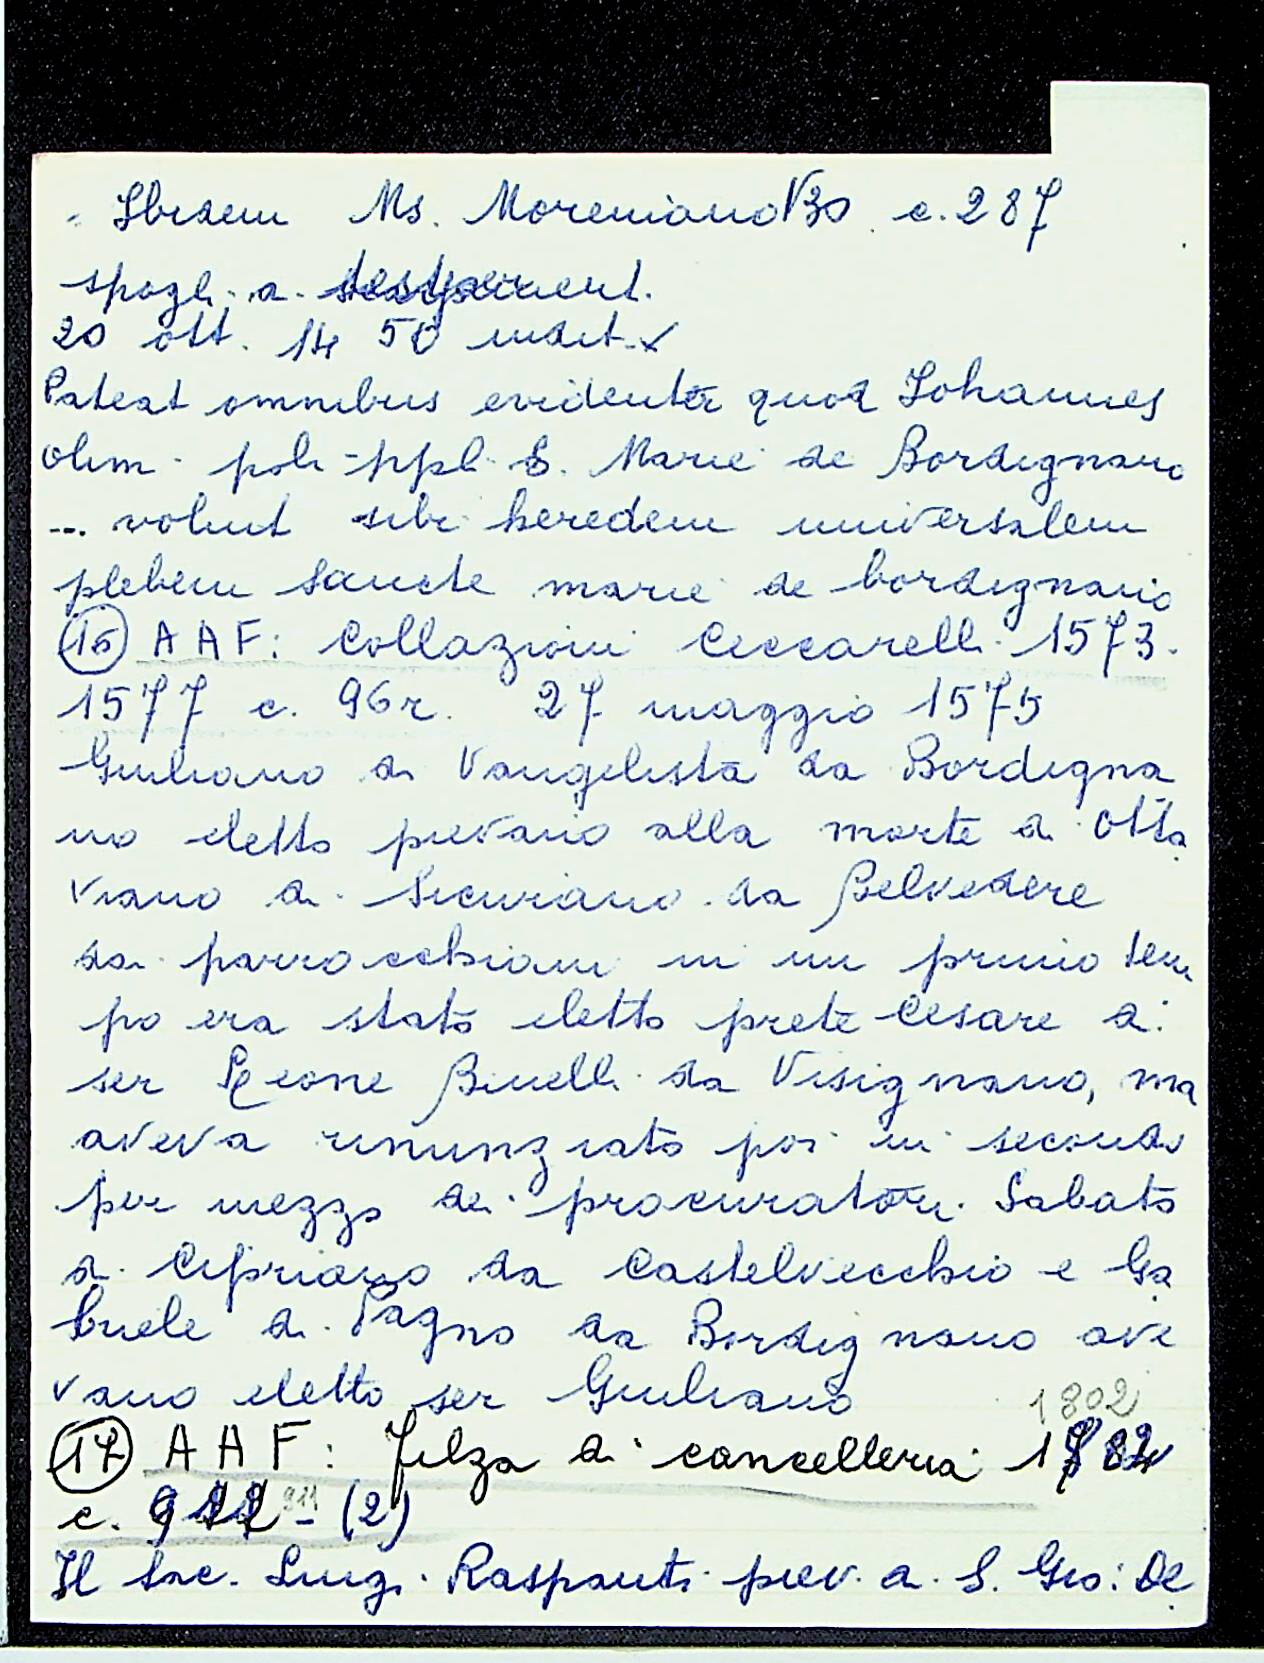 Ibidem Ms. Moreniano 330 c. 287
spogli a
20 ott. 1450 indit.
Pateat omnibus evidenter quod Iohannes
olim poli ppl. S. Marie de Bordignano
... voluit sibi heredem universalem
plebem Sancte marie de bordignano
(16) AAF: Collazioni Ceccarelli 1573-
1577 c. 96r. 27 maggio 1575
Giuliano di Vangelista da Bordigna
no eletto pievano alla morte di Otta
viano di Sicuriano da Belvedere
dai parrocchiani in un primo tem
po era stato eletto prete Cesare di
ser Leone Binelli da Visignano, ma
aveva rinunziato poi in secondo
per mezzo dei procuratori Sabato
di Cipriano da Castelvecchio e Ga
briele di Pagno da Bordignano ave
vano eletto ser Giuliano
1802
(17) AAF: Filza di cancelleria
c. 911 - (2)
Il Sac. Luigi Raspanti piev. a S. Gio: De